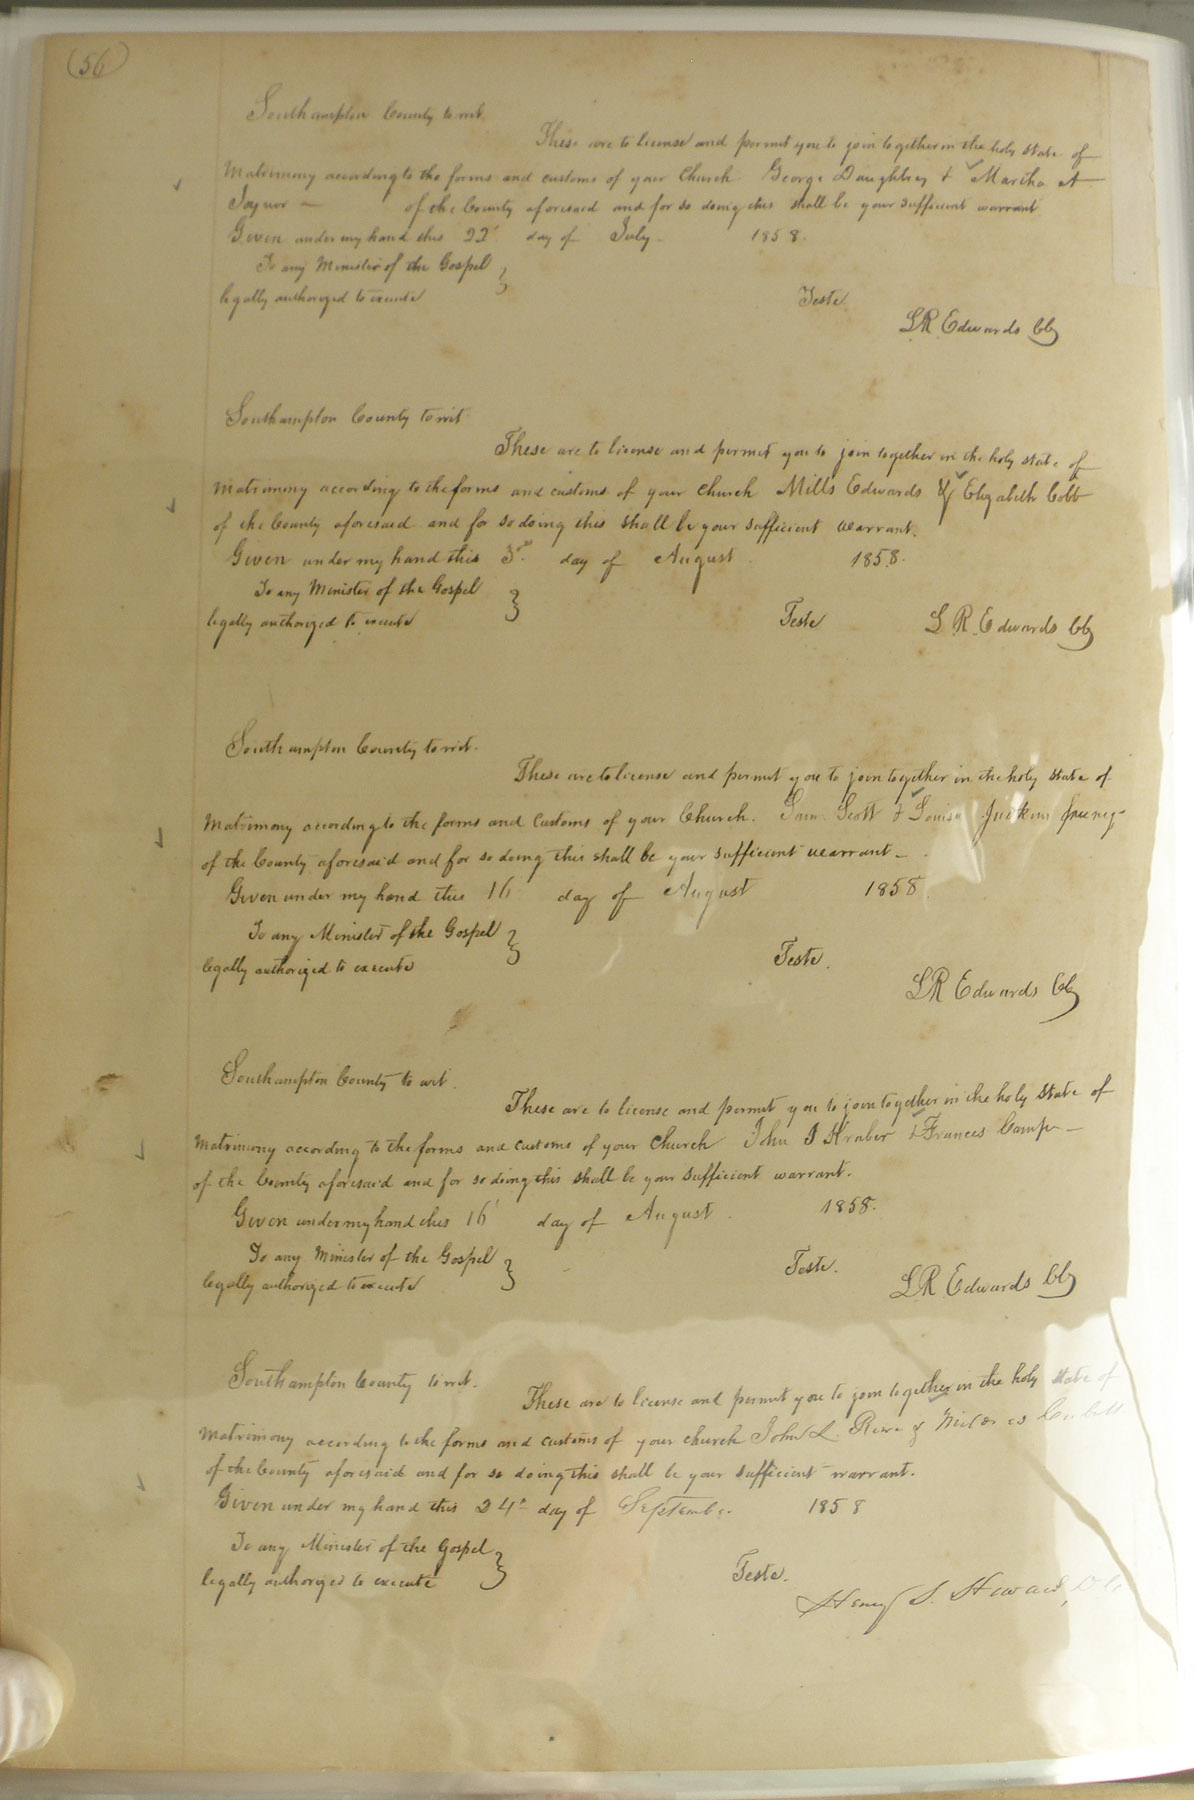 (56)
Southampton County to wit.
These are to license and permit you to join together in the holy state of
Matrimony according to the forms and customs of your Church George Daughtrey & Martha A
Joyner — of the County aforesaid and for so doing this shall be your sufficient warrant
Given under my hand this 22' day of July. 1858.
To any Minister of the Gospel }
legally authorized to execute Teste.
LR Edwards Clk
Southampton County to wit
These are to license and permit you to join together in the holy state of
Matrimony according to the forms and customs of your Church Mills Edwards & Elizabeth Cobb
of the County aforesaid and for so doing this shall be your sufficient warrant.
Given under my hand this 3rd day of August 1858.
To any Minister of the Gospel }
legally authorized to execute Teste
L R Edwards Clk
Southampton County to wit.
These are to license and permit you to join together in the holy state of
Matrimony according to the forms and Customs of your Church. Scott & Louisa Judkins
of the County aforesaid and for so doing this shall be your sufficient warrant —
Given under my hand this 16 day of August 1858.
To any Minister of the Gospel }
legally authorized to execute Teste.
LR Edwards Clk
Southampton County to wit.
These are to license and permit you to join together in the holy state of
Matrimony according to the forms and customs of your Church John & Frances Camp —
of the County aforesaid and for so doing this shall be your sufficient warrant.
Given under my hand this 16' day of August 1858.
To any Minister of the Gospel }
legally authorized to execute Teste.
LR Edwards Clk
Southampton County to wit.
These are to license and permit you to join together in the holy state of
Matrimony according to the forms and customs of your Church John L.
of the County aforesaid and for so doing this shall be your sufficient warrant.
Given under my hand this 24th day of September 1858
To any Minister of the Gospel }
legally authorized to execute Teste.
Henry S.